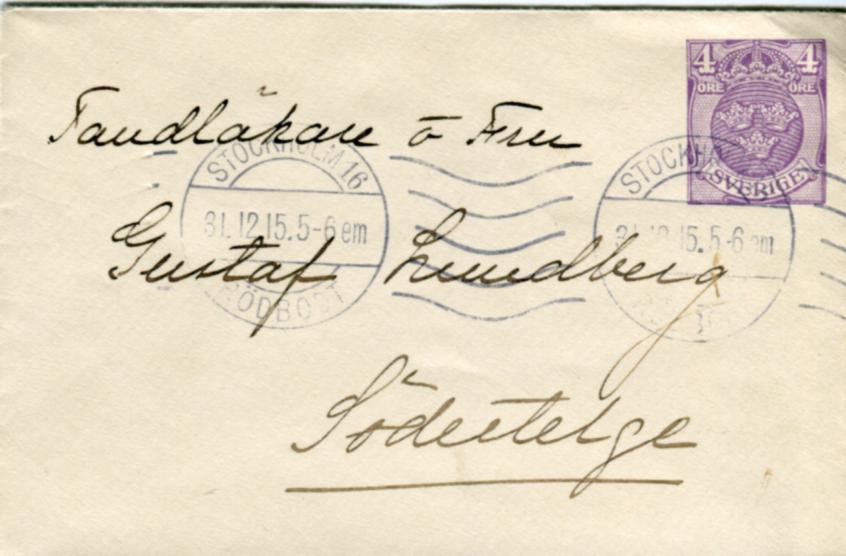 4 4
ÖRE ÖRE
SVERIGE
Tandläkare o Fru
STOCKHOLM 16
31.12.15.5-6 em
RÖDBODT
STOCKH
31.12.15.5-6 em
Gustaf Lundberg
Södertelge